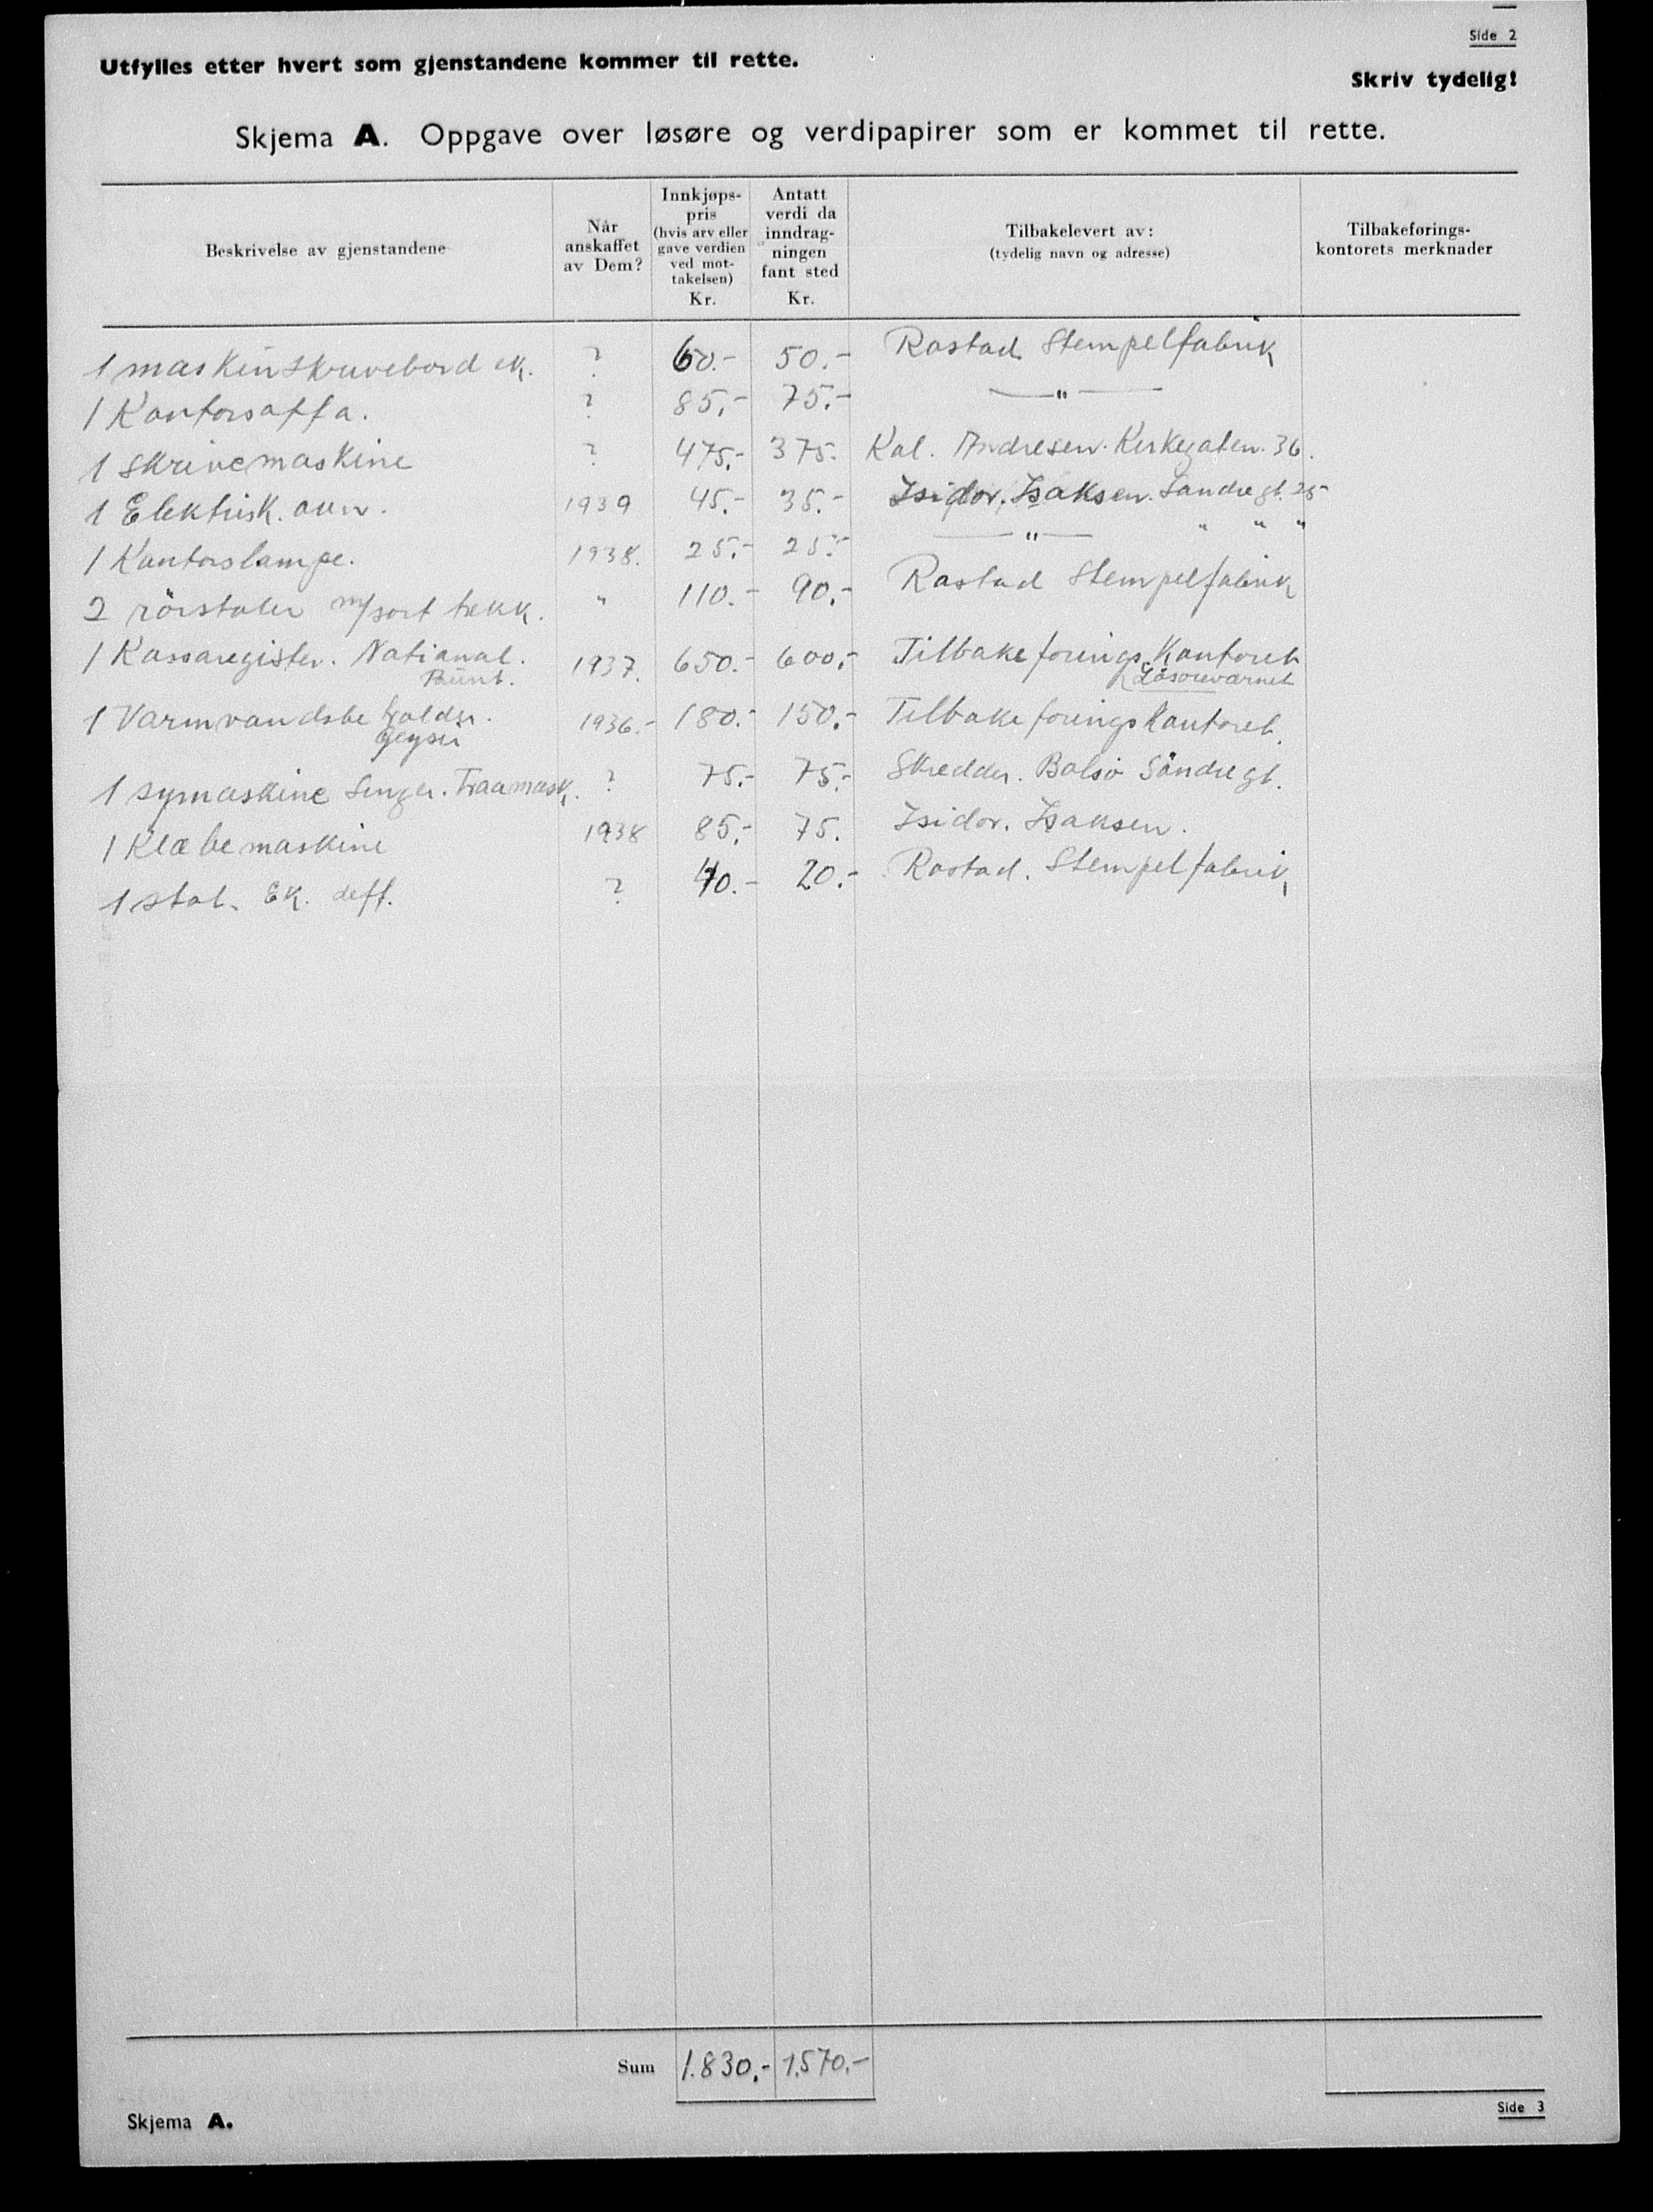 Side 2
Utfylles etter hvert som gjenstandene kommer til rette.
Skriv tydelig!
Skjema A. Oppgave over løsøre og verdipapirer som er kommet til rette.
Beskrivelse av gjenstandene
Når anskaffet av Dem?
Innkjøps-pris (hvis arv eller gave verdien ved mot-takelsen) Kr.
Antatt verdi da inndrag-ningen fant sted Kr.
Tilbakelevert av: (tydelig navn og adresse)
Tilbakeførings-kontorets merknader
1 maskinskrivebord ek. ? 60.- 50.- Rastad Stempelfabrik
1 Kontorsoffa. ? 85,- 75,- —"—
1 Skrivemaskine ? 475,- 375.- Kal. Andresen. Kirkegaten. 36.
1 Elektrisk. ovn. 1939 45,- 35.- Isidor. Isaksen. Søndregt. 25
1 Kontorslampe. 1938. 25,- 25,- —"— " " "
2 rörstoler m/sort trekk. " 110.- 90,- Rastad Stempelfabrik
1 Kassaregister. National. 1937. 650.- 600,- Tilbakeförings Kontoret
Løsørevarnet
1 Varmvandsbeholder. 1936.- 180.- 150,- Tilbakeföringskontoret.
Geyser
1 symaskine Singer. Traamask. ? 75,- 75,- Skredder. Balsö Söndregt.
1 Klæbemaskine 1938 85,- 75. Isidor. Isaksen.
1 stol. Ek. deff. ? 40.- 20.- Rastad. Stempelfabrik
Sum 1.830,- 1.570,-
Skjema A.
Side 3